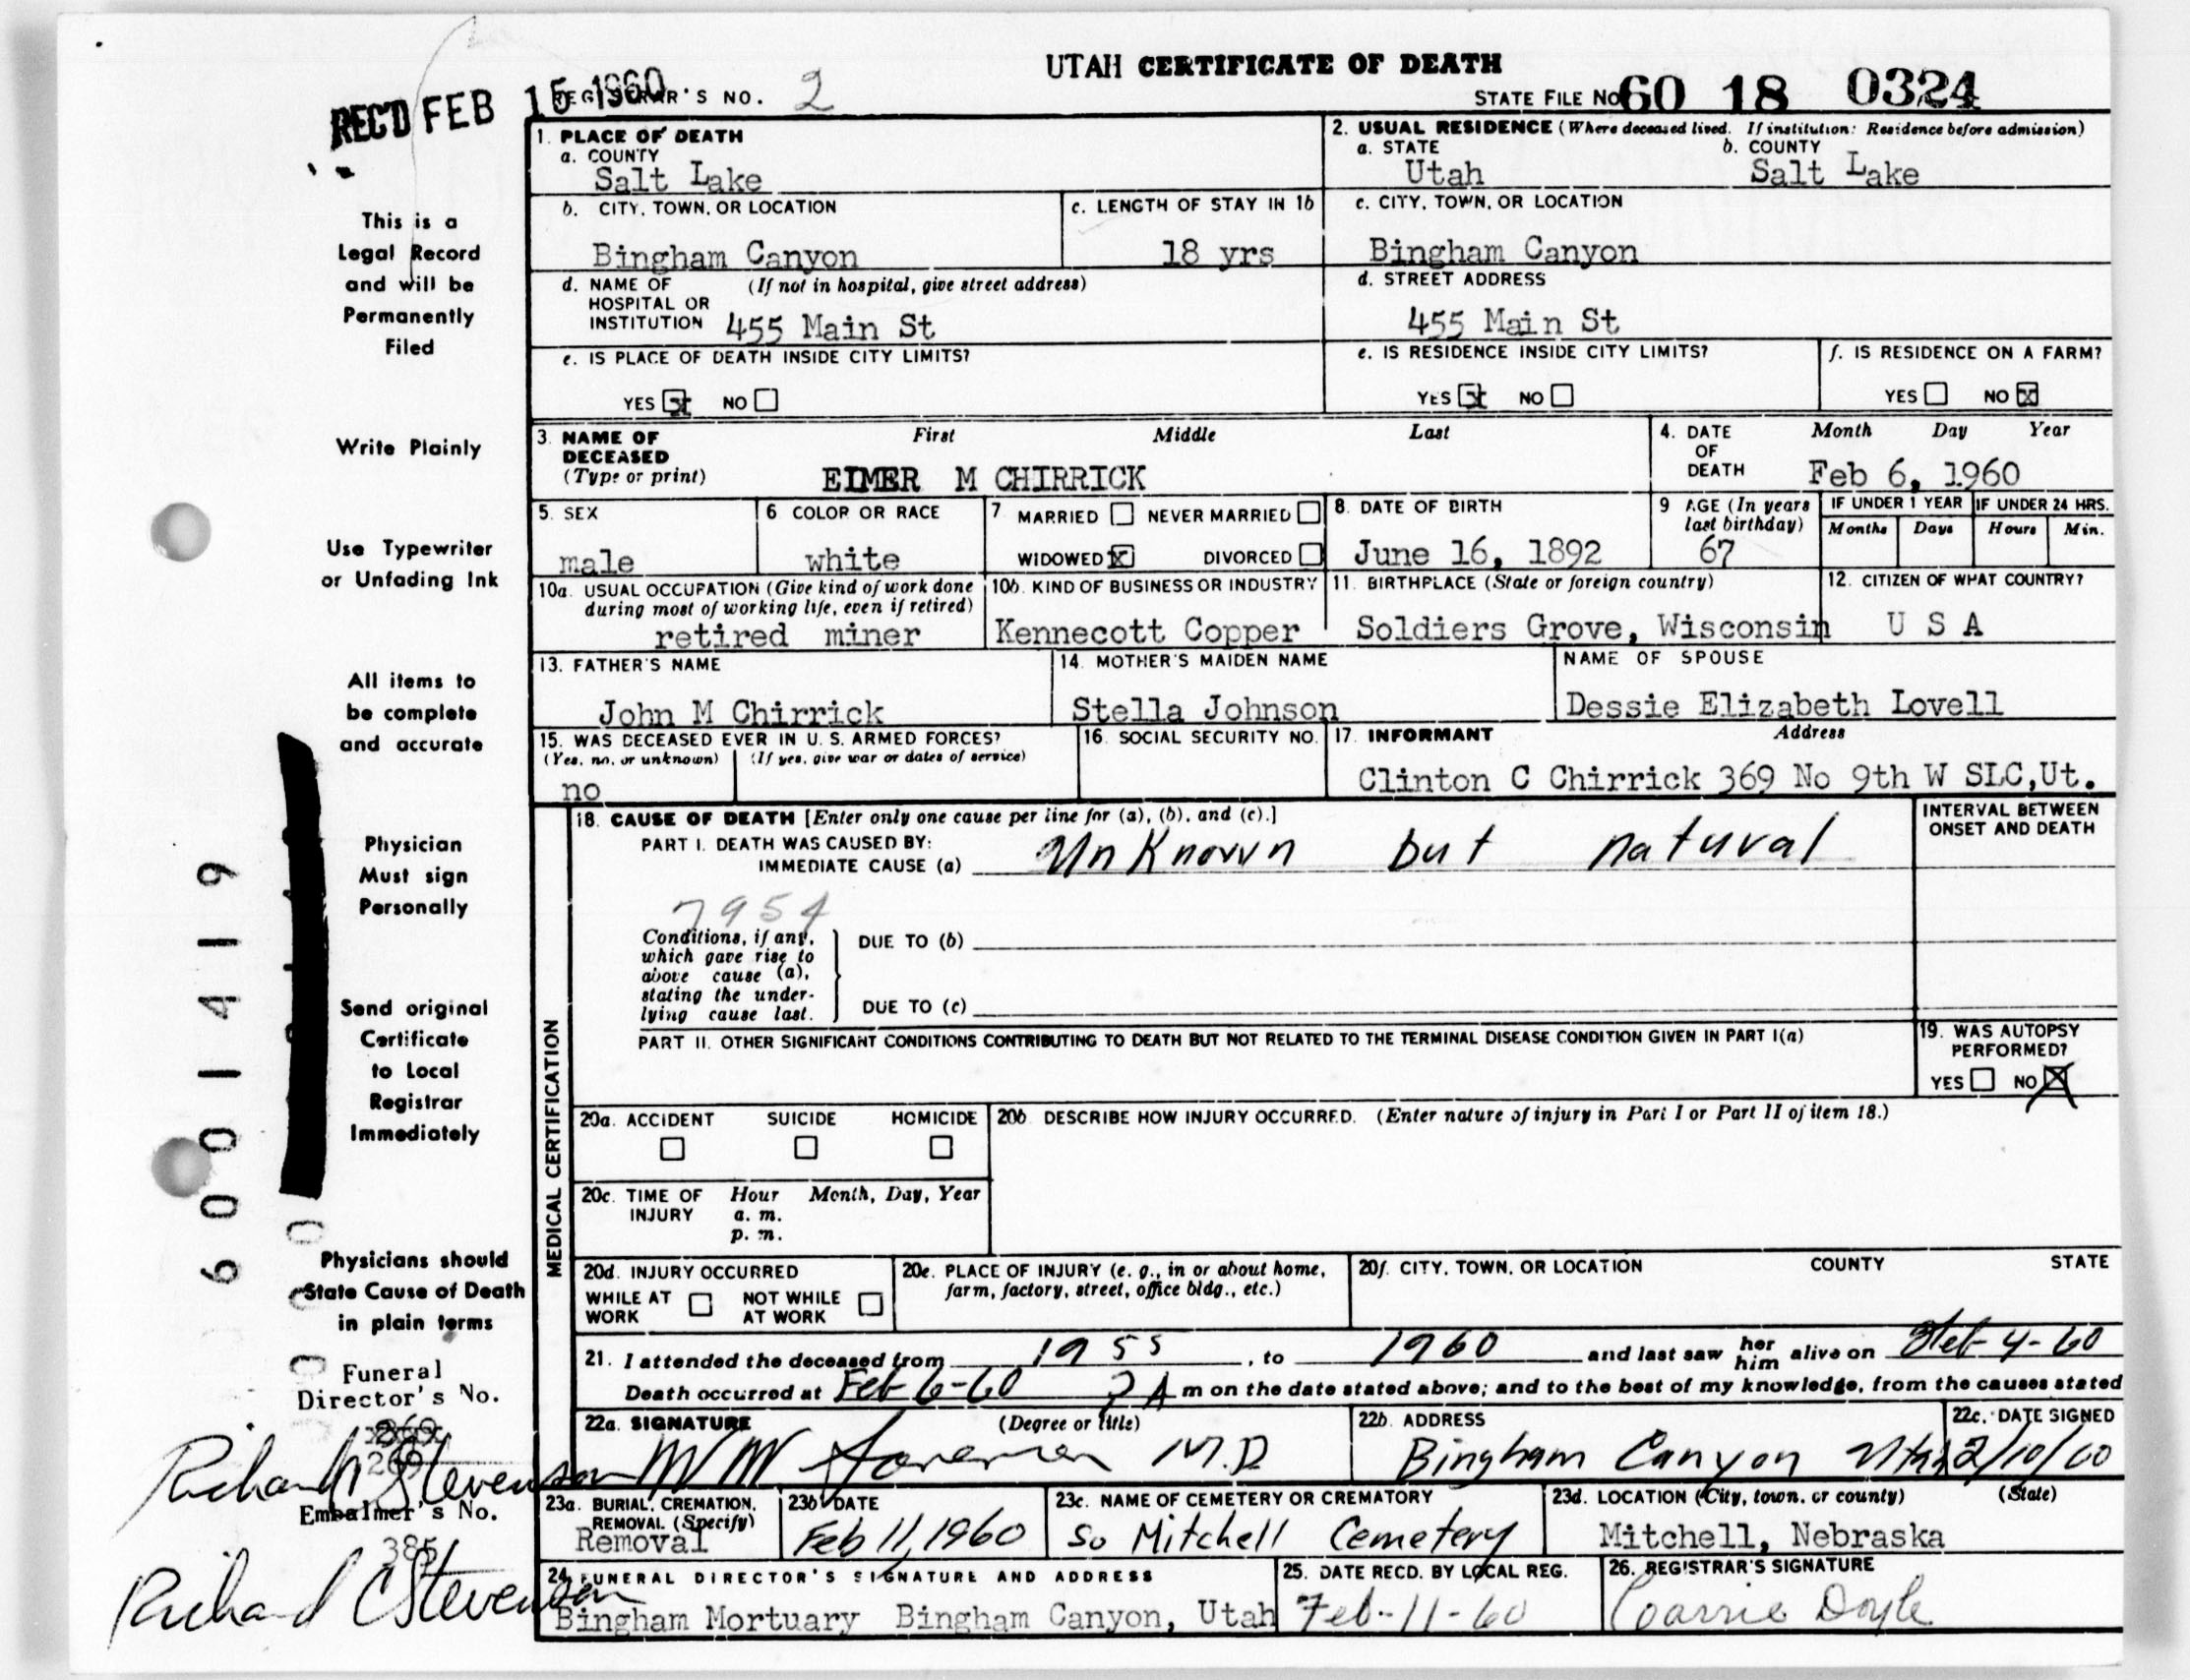 UTAH CERTIFICATE OF DEATH
REC'D FEB 15 1960
REGISTRAR'S NO. 2
STATE FILE No 60 18 0324
This is a
Legal Record
and will be
Permanently
Filed
Write Plainly
Use Typewriter
or Unfading Ink
All items to
be complete
and accurate
Physician
Must sign
Personally
Send original
Certificate
to Local
Registrar
Immediately
Physicians should
State Cause of Death
in plain terms
Funeral
Director's No.
269
Richard C Stevenson
Embalmer's No.
385
Richard C Stevenson
6001419
1. PLACE OF DEATH
a. COUNTY
Salt Lake
2. USUAL RESIDENCE (Where deceased lived. If institution: Residence before admission)
a. STATE b. COUNTY
Utah Salt Lake
b. CITY, TOWN, OR LOCATION
Bingham Canyon
c. LENGTH OF STAY IN 1b
18 yrs
c. CITY, TOWN, OR LOCATION
Bingham Canyon
d. NAME OF (If not in hospital, give street address)
HOSPITAL OR
INSTITUTION 455 Main St
d. STREET ADDRESS
455 Main St
e. IS PLACE OF DEATH INSIDE CITY LIMITS?
YES x NO
e. IS RESIDENCE INSIDE CITY LIMITS?
YES x NO
f. IS RESIDENCE ON A FARM?
YES NO x
3. NAME OF First Middle Last
DECEASED
(Type or print) EIMER M CHIRRICK
4. DATE Month Day Year
OF
DEATH Feb 6, 1960
5. SEX
male
6. COLOR OR RACE
white
7. MARRIED NEVER MARRIED
WIDOWED X DIVORCED
8. DATE OF BIRTH
June 16, 1892
9 AGE (In years
last birthday)
67
IF UNDER 1 YEAR IF UNDER 24 HRS.
Months Days Hours Min.
10a. USUAL OCCUPATION (Give kind of work done
during most of working life, even if retired)
retired miner
10b. KIND OF BUSINESS OR INDUSTRY
Kennecott Copper
11. BIRTHPLACE (State or foreign country)
Soldiers Grove, Wisconsin
12. CITIZEN OF WHAT COUNTRY?
U S A
13. FATHER'S NAME
John M Chirrick
14. MOTHER'S MAIDEN NAME
Stella Johnson
NAME OF SPOUSE
Dessie Elizabeth Lovell
15. WAS DECEASED EVER IN U. S. ARMED FORCES?
(Yes, no, or unknown) (If yes, give war or dates of service)
no
16. SOCIAL SECURITY NO.
17. INFORMANT Address
Clinton C Chirrick 369 No 9th W SLC,Ut.
MEDICAL CERTIFICATION
18. CAUSE OF DEATH [Enter only one cause per line for (a), (b), and (c).]
PART I. DEATH WAS CAUSED BY:
IMMEDIATE CAUSE (a) UnKnown but natural
INTERVAL BETWEEN
ONSET AND DEATH
7954
Conditions, if any,
which gave rise to
above cause (a),
stating the under-
lying cause last.
DUE TO (b)
DUE TO (c)
PART II. OTHER SIGNIFICANT CONDITIONS CONTRIBUTING TO DEATH BUT NOT RELATED TO THE TERMINAL DISEASE CONDITION GIVEN IN PART I(a)
19. WAS AUTOPSY
PERFORMED?
YES NO X
20a. ACCIDENT SUICIDE HOMICIDE
20b DESCRIBE HOW INJURY OCCURRED. (Enter nature of injury in Part I or Part II of item 18.)
20c. TIME OF Hour Month, Day, Year
INJURY a. m.
p. m.
20d. INJURY OCCURRED
WHILE AT NOT WHILE
WORK AT WORK
20e. PLACE OF INJURY (e. g., in or about home,
farm, factory, street, office bldg., etc.)
20f. CITY, TOWN, OR LOCATION COUNTY STATE
21. I attended the deceased from 1955, to 1960 and last saw her him alive on Feb-4-60
Death occurred at Feb 6-60 2 A m on the date stated above; and to the best of my knowledge, from the causes stated
22a. SIGNATURE (Degree or title)
W M M.D
22b. ADDRESS
Bingham Canyon Utah
22c. DATE SIGNED
2/10/60
23a. BURIAL, CREMATION,
REMOVAL (Specify)
Removal
23b DATE
Feb 11, 1960
23c. NAME OF CEMETERY OR CREMATORY
So Mitchell Cemetery
23d. LOCATION (City, town, or county) (State)
Mitchell, Nebraska
24. FUNERAL DIRECTOR'S SIGNATURE AND ADDRESS
Bingham Mortuary Bingham Canyon, Utah
25. DATE RECD. BY LOCAL REG.
Feb-11-60
26. REGISTRAR'S SIGNATURE
Carrie Doyle